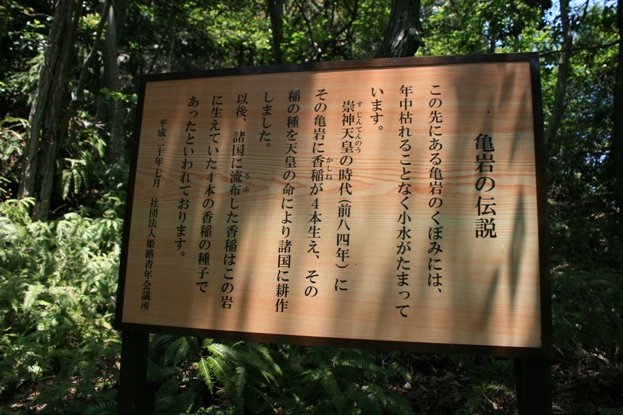 亀岩の伝説
この先にある亀岩のくぼみには、
年中枯れることなく小水がたまって
います。
崇神天皇の時代(前八四年)に
すじんてんのう
その亀岩に香稲が4本生え、その
かとね
稲の種を天皇の命により諸国に耕作
しました。
以後、諸国に流布した香稲はこの岩
るふ
に生えていた4本の香稲の種子で
あったといわれております。
平成二十年七月 社団法人姫路青年会議所